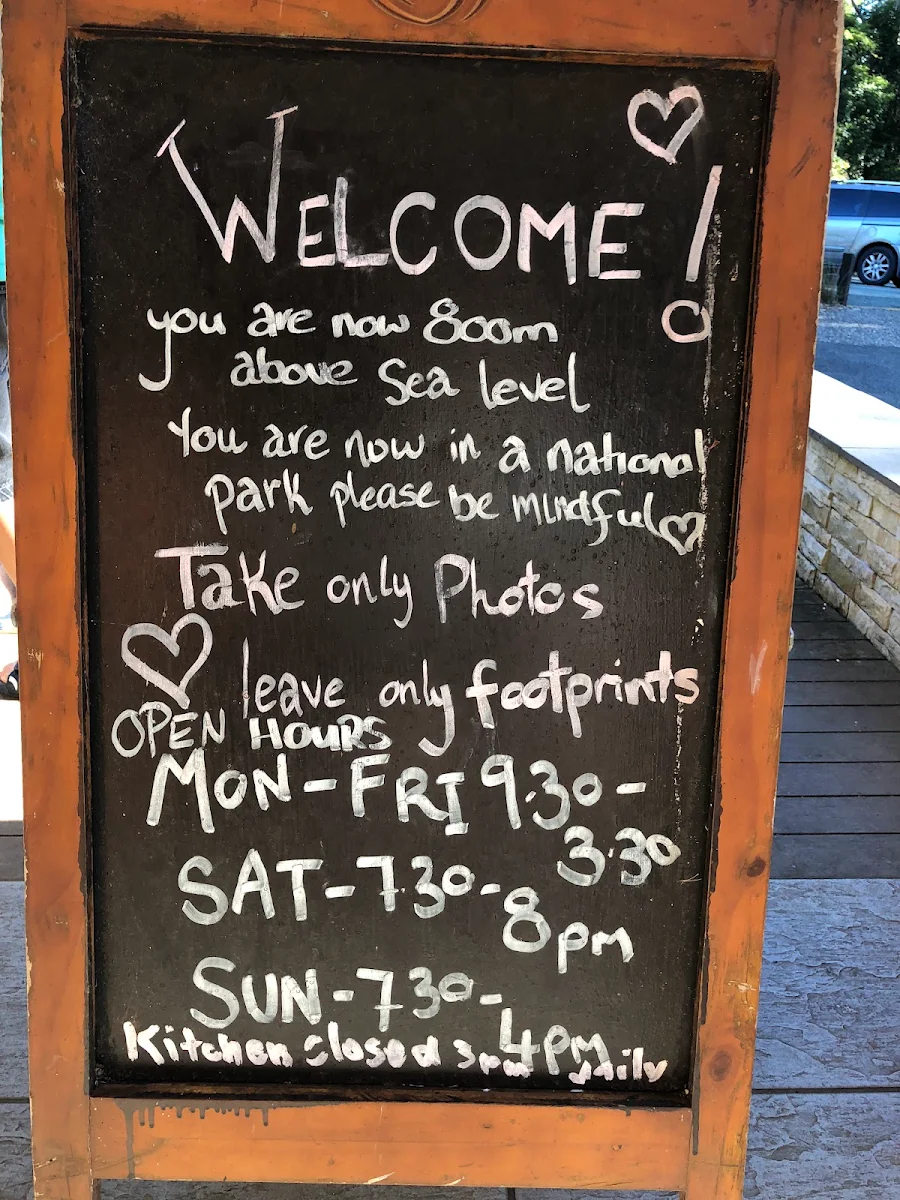 WELCOME!
you are now 800m
above Sea level
You are now in a national
park please be mindful
Take only Photos
leave only footprints
OPEN HOURS
MON-FRI 9.30-
3.30
SAT-7.30-
8pm
SUN-7.30-
4pm
Kitchen closed 3pm daily